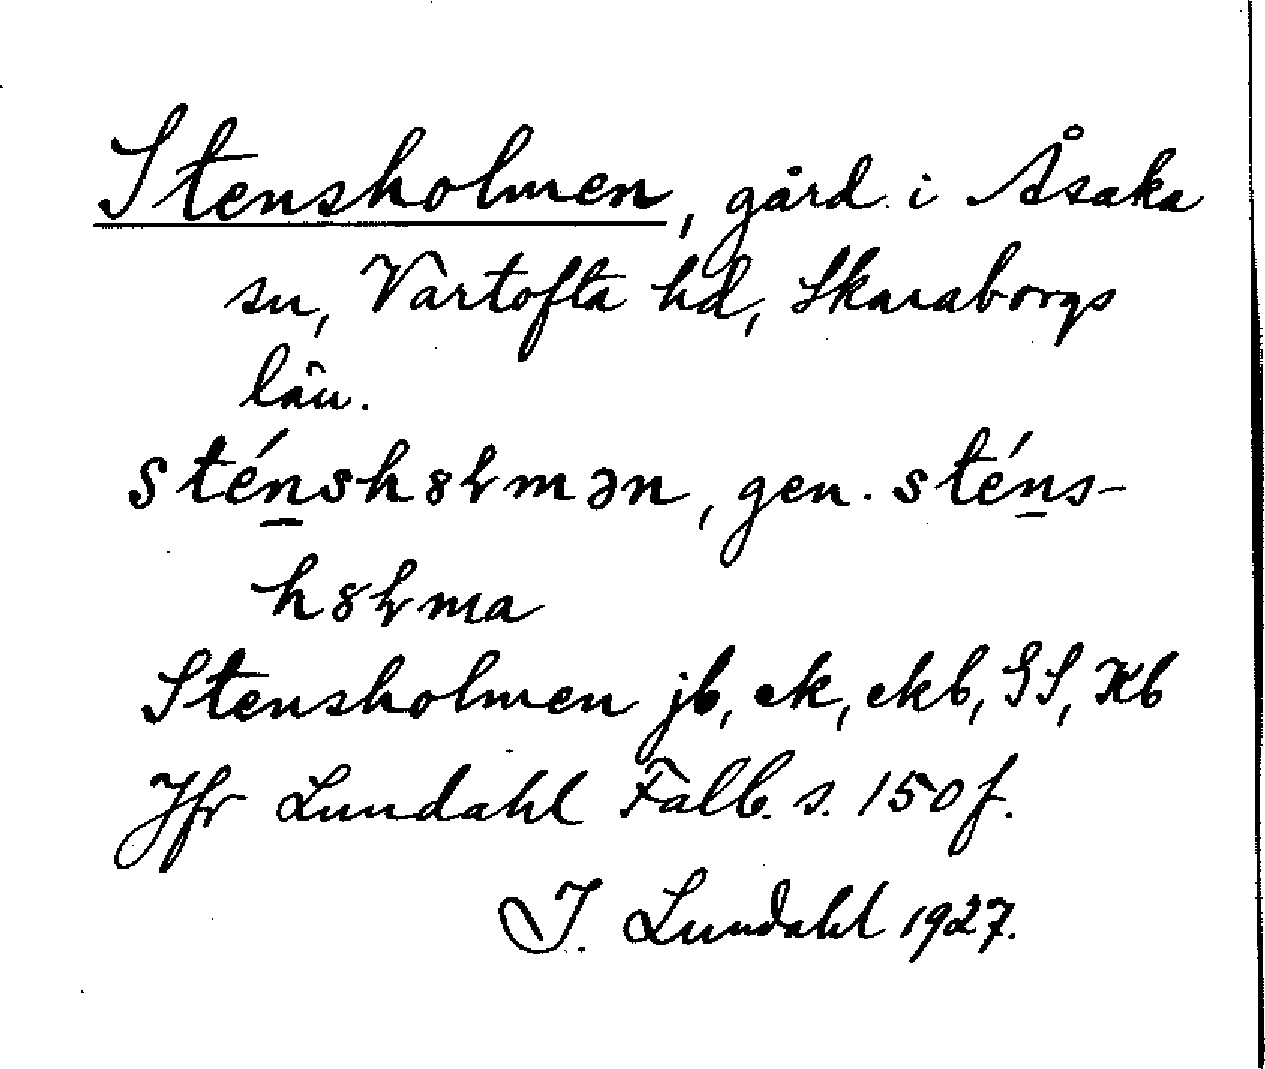 Stensholmen, gård i Åsaka
sn, Vartofta hd, Skaraborgs
län.
sténsh8ɽmən, gen. sténs-
h8ɽma
Stensholmen jb, ek, ekb, GS, Kb
Jfr Lundahl Falb. s. 150 f.
I. Lundahl 1927.